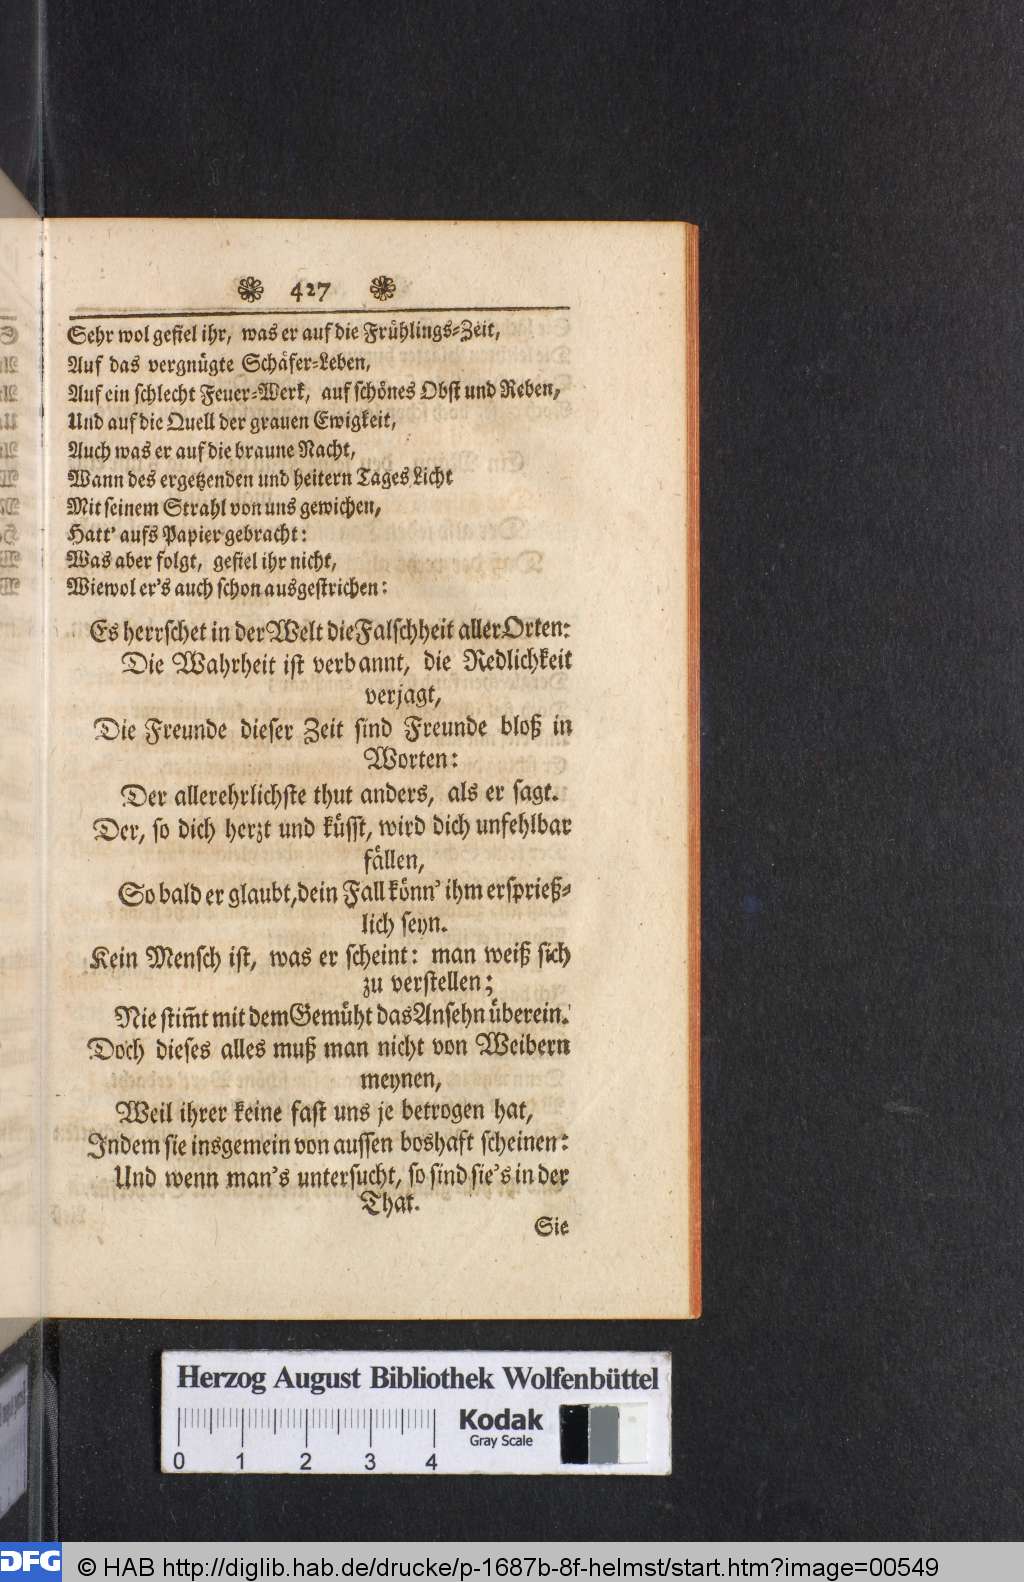 427
Sehr wol gefiel ihr, was er auf die Frühlings-Zeit,
Auf das vergnügte Schäfer-Leben,
Auf ein schlecht Feuer-Werk, auf schönes Obst und Reben,
Und auf die Quell der grauen Ewigkeit,
Auch was er auf die braune Nacht,
Wann des ergetzenden und heitern Tages Licht
Mit seinem Strahl von uns gewichen,
Hatt' aufs Papier gebracht:
Was aber folgt, gefiel ihr nicht,
Wiewol er's auch schon ausgestrichen:
Es herrschet in der Welt die Falschheit aller Orten:
Die Wahrheit ist verbannt, die Redlichkeit
verjagt,
Die Freunde dieser Zeit sind Freunde bloß in
Worten:
Der allerehrlichste thut anders, als er sagt.
Der, so dich herzt und küsst, wird dich unfehlbar
fällen,
So bald er glaubt, dein Fall könn' ihm ersprieß-
lich seyn.
Kein Mensch ist, was er scheint: man weiß sich
zu verstellen;
Nie stim̅t mit dem Gemüht das Ansehn überein.
Doch dieses alles muß man nicht von Weibern
meynen,
Weil ihrer keine fast uns je betrogen hat,
Indem sie insgemein von aussen boshaft scheinen:
Und wenn man's untersucht, so sind sie's in der
That.
Sie
Herzog August Bibliothek Wolfenbüttel
Kodak
Gray Scale
0 1 2 3 4
DFG © HAB http://diglib.hab.de/drucke/p-1687b-8f-helmst/start.htm?image=00549